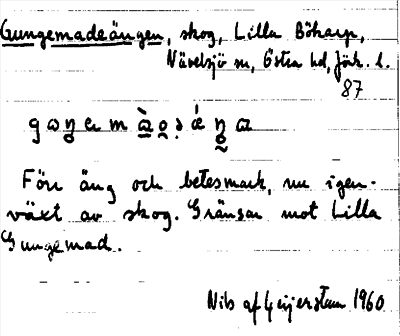 Gungemadeängen, skog, Lilla Böharp,
Nävelsjö sn, Östra hd, Jönk. l.
87
Förr äng och betesmark, nu igen-
växt av skog. Gränsar mot Lilla
Gungemad.
Nils af Geijerstam 1960